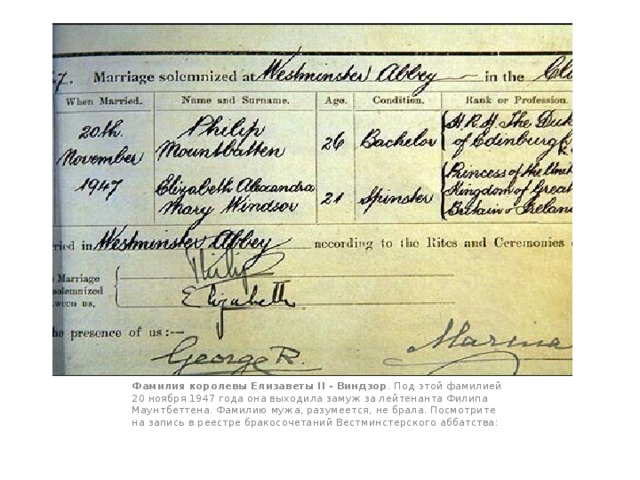 7. Marriage solemnized at Westminster Abbey in the
When Married. Name and Surname. Age. Condition. Rank or Profession.
20th November 1947
Philip Mountbatten 26 Bachelor H.R.H. The Duke of Edinburgh K.
Elizabeth Alexandra Mary Windsor 21 Spinster Princess of the Unit Kingdom of Great Britain & Ireland
ried in Westminster Abbey according to the Rites and Ceremonies
Marriage
solemnized
ween us,
Philip
Elizabeth
he presence of us:—
George R.
Marina
Фамилия королевы Елизаветы II - Виндзор. Под этой фамилией
20 ноября 1947 года она выходила замуж за лейтенанта Филипа
Маунтбеттена. Фамилию мужа, разумеется, не брала. Посмотрите
на запись в реестре бракосочетаний Вестминстерского аббатства: